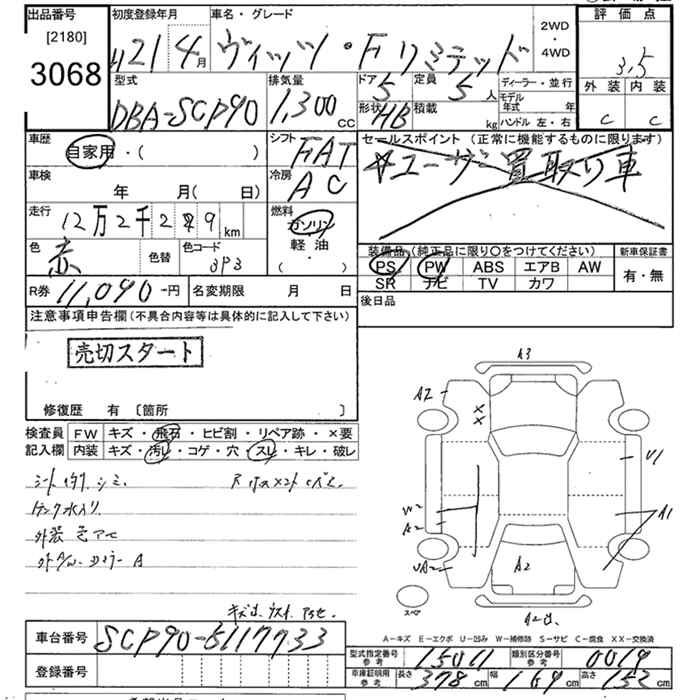 出品番号 初度登録年月 車名・グレード 2WD・4WD 評価点
[2180] 3068 H21 4月 ヴィッツ・Fリミテッド 3.5
型式 排気量 ドア 5 定員 5人 ディーラー・並行 外装 内装
DBA-SCP90 1,300cc 形状 HB 積載 kg モデル年式 年 ハンドル 左・右 C C
車歴 自家用・( ) シフト FAT セールスポイント(正常に機能するものに限ります)
車検 年 月( 日) 冷房 AC ☆ユーザー買取り車
走行 12万2千2 9km 燃料 ガソリン 軽油 ( ・ )
色 赤 色替 色コード 3P3 装備品(純正品に限り〇をつけてください) 新車保証書
PS PW ABS エアB AW 有・無
SR ナビ TV カワ
R券 11,090-円 名変期限 月 日 後日品
注意事項申告欄(不具合内容等は具体的に記入して下さい)
売切スタート
修復歴 有 〔箇所 〕
検査員 FW キズ・飛石・ヒビ割・リペア跡・×要
記入欄 内装 キズ・汚レ・コゲ・穴・スレ・キレ・破レ
シミ
外装
A3
A2
U1
W
A2
A1
A2
スペア
A-キズ E-エクボ U-凹み W-補修跡 S-サビ C-腐食 XX-交換済
車台番号 SCP90-5117733
型式指定番号 参考 15011 類別区分番号 参考 0019
登録番号 車庫証明用 参考 長さ 378cm 幅 169cm 高さ 152cm